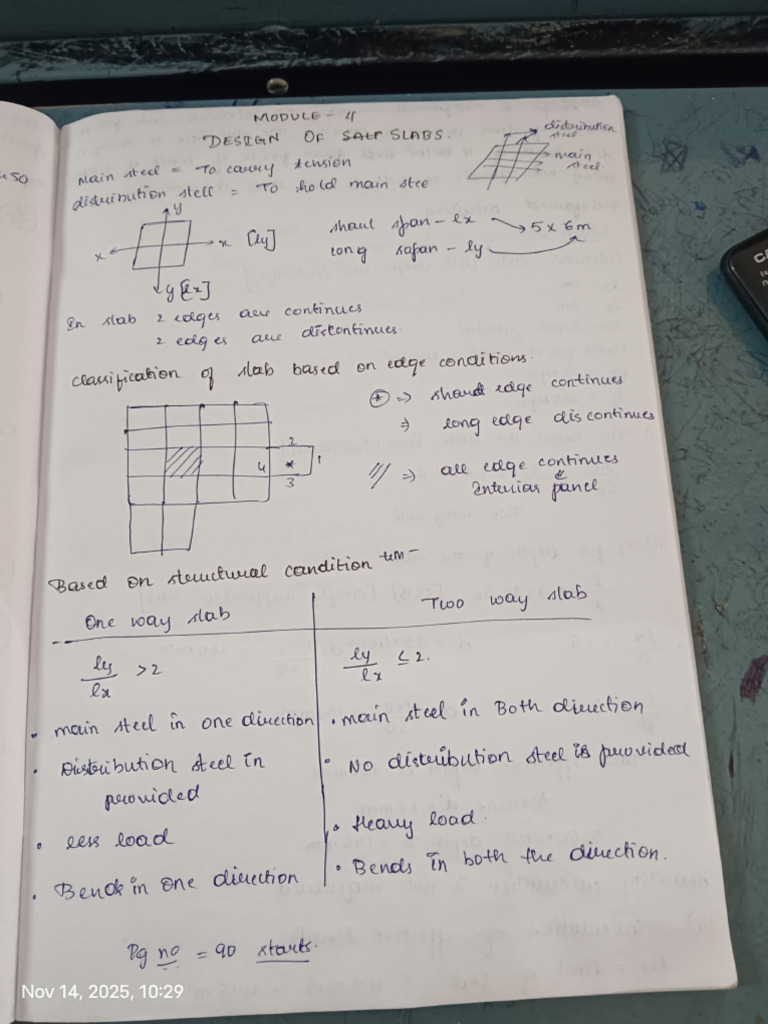 MODULE - 4
DESIGN OF SLABS.
distribution steel
main steel
Main steel = To carry tension
distribution stell = To hold main stee
y
x x [ly]
y [lx]
short span - lx 5 x 6m
long sapan - ly
In slab 2 edges are continues
2 edges are discontinues.
Classification of slab based on edge conditions.
2
4 * 1
3
* => short edge continues
=> long edge discontinues
/// => all edge continues
Interias panel
Based on structural condition
One way slab
Two way slab
ly/lx > 2
ly/lx ≤ 2.
• main steel in one direction
• main steel in Both direction
• Distribution steel in
provided
• No distribution steel is provided
• less load
• Heavy load.
• Bends in one direction
• Bends in both the direction.
Pg no = 90 starts.
Nov 14, 2025, 10:29
50
CA